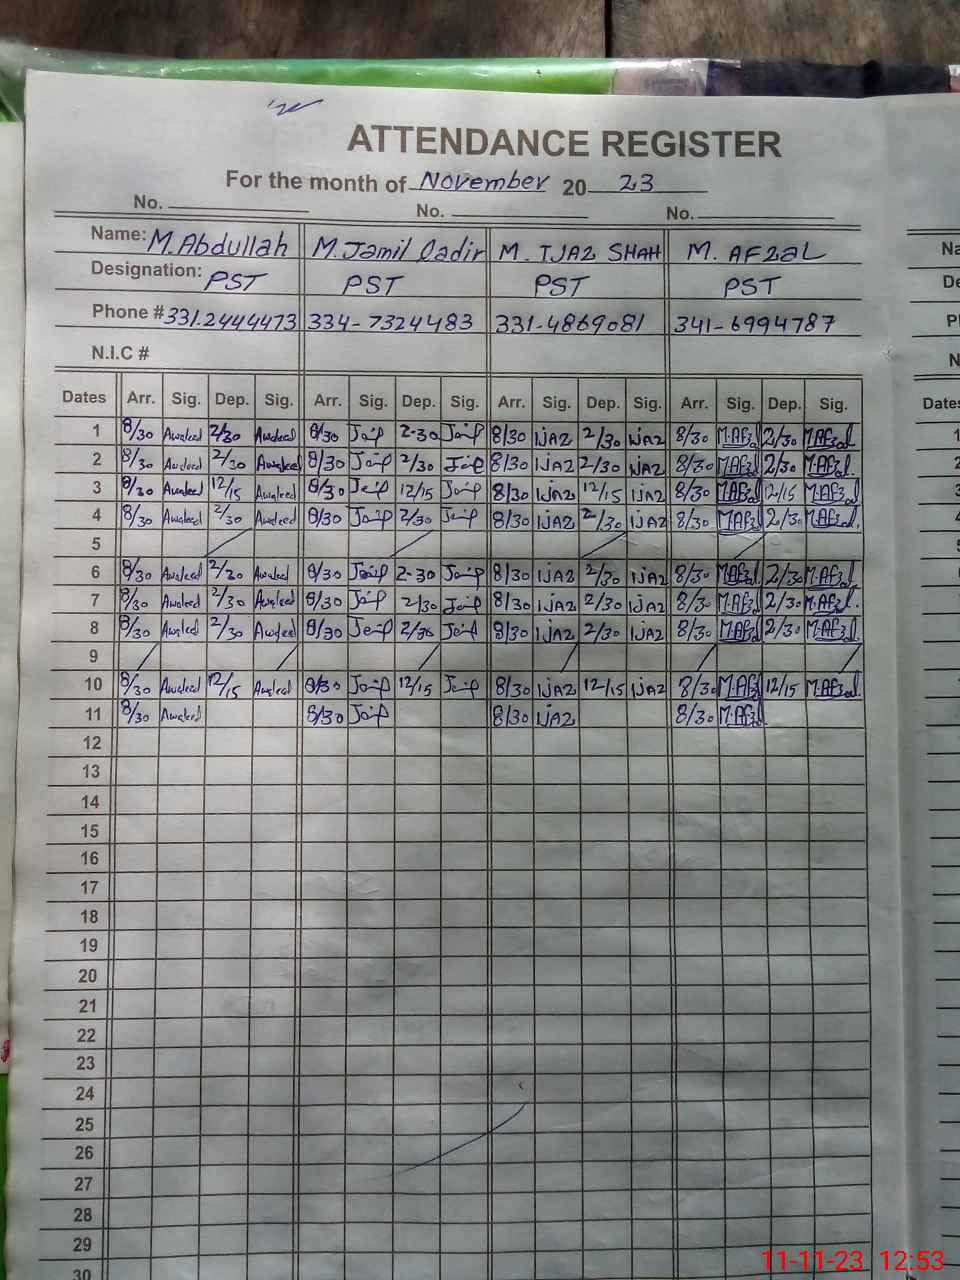 ATTENDANCE REGISTER
For the month of November 20 23
No. No. No.
Name: M.Abdullah M.Jamil Qadir M. IJAZ SHAH M. AFZaL
Designation: PST PST PST PST
Phone # 331.2444473 334-7324483 331-4869081 341-6994787
N.I.C #
Dates Arr. Sig. Dep. Sig. Arr. Sig. Dep. Sig. Arr. Sig. Dep. Sig. Arr. Sig. Dep. Sig.
1 8/30 2/30 8/30 2-30 8/30 IJAZ 2/30 IJAZ 8/30 M.Afzal 2/30 M.Afzal
2 8/30 2/30 8/30 2/30 8/30 IJAZ 2/30 IJAZ 8/30 M.Afzal 2/30 M.Afzal.
3 8/30 12/15 8/30 12/15 8/30 IJAZ 12/15 IJAZ 8/30 M.Afzal 12/15 M.Afzal
4 8/30 2/30 8/30 2/30 8/30 IJAZ 2/30 IJAZ 8/30 M.Afzal 2/30 M.Afzal.
5
6 8/30 2/30 8/30 2-30 8/30 IJAZ 2/30 IJAZ 8/30 M.Afzal 2/30 M.Afzal
7 8/30 2/30 8/30 2/30 8/30 IJAZ 2/30 IJAZ 8/30 M.Afzal 2/30 M.Afzal.
8 8/30 2/30 8/30 2/30 8/30 IJAZ 2/30 IJAZ 8/30 M.Afzal 2/30 M.Afzal.
9
10 8/30 12/15 8/30 12/15 8/30 IJAZ 12/15 IJAZ 8/30 M.Afzal 12/15 M.Afzal.
11 8/30 8/30 8/30 IJAZ 8/30 M.Afzal
12
13
14
15
16
17
18
19
20
21
22
23
24
25
26
27
28
29
30
11-11-23 12:53